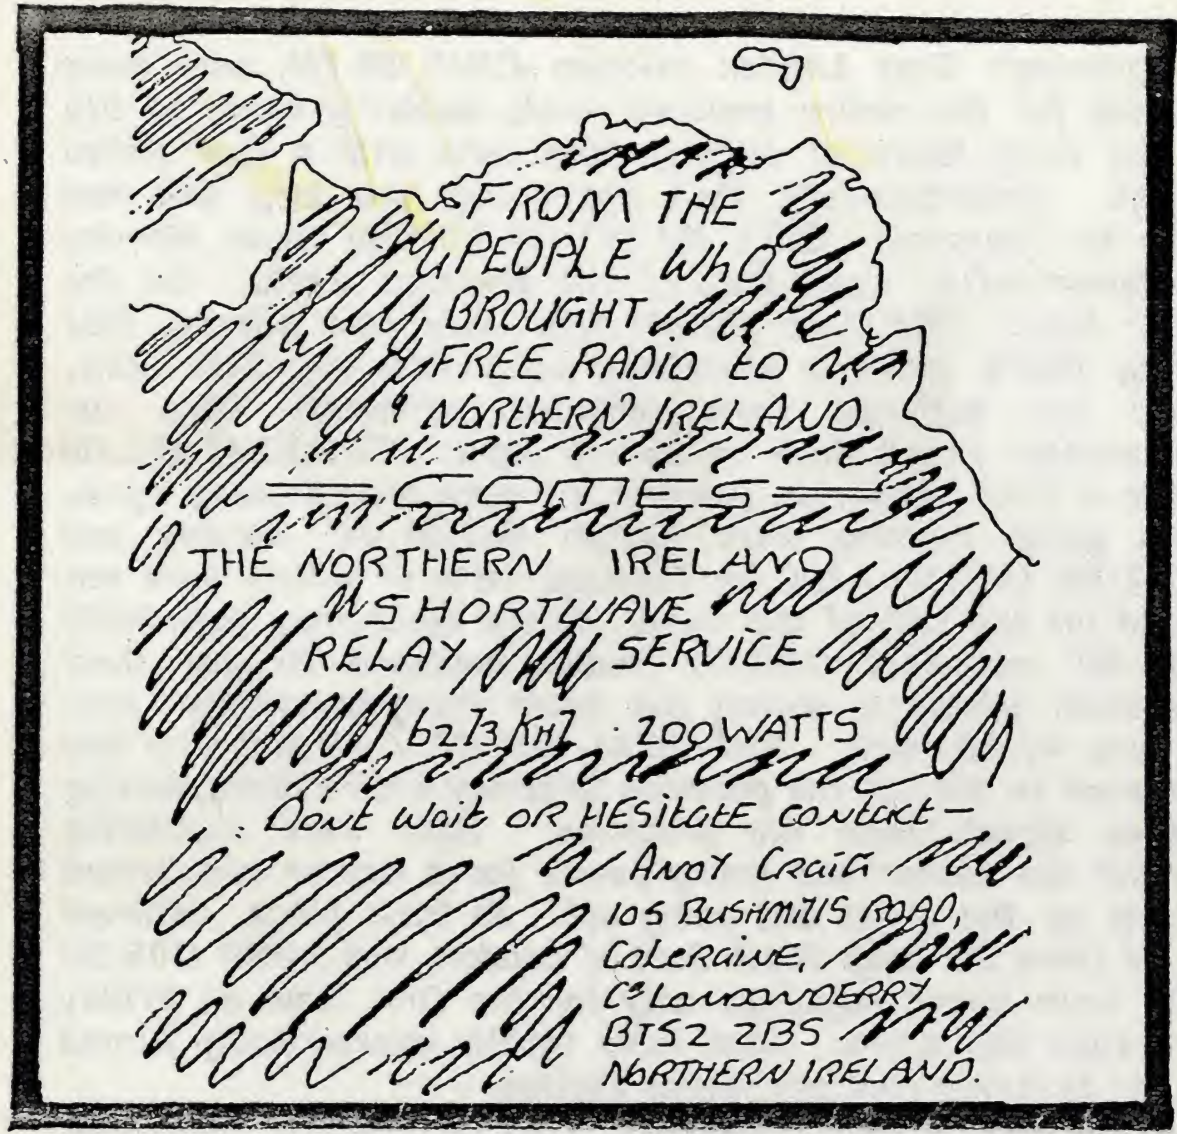 FROM THE
PEOPLE WhO
BROUGHT
FREE RADIO to
NORthERN IRELAND.
COMES
THE NORTHERN IRELAND
SHORTWAVE
RELAY SERVICE
6273 KHZ · 200 WATTS
Dont wait OR HESitatE contact—
ANDY CRaiG
105 BUSHMillS ROAD,
ColERaiNE,
Co LONDONDERRY
BT52 2BS
NORTHERN IRELAND.